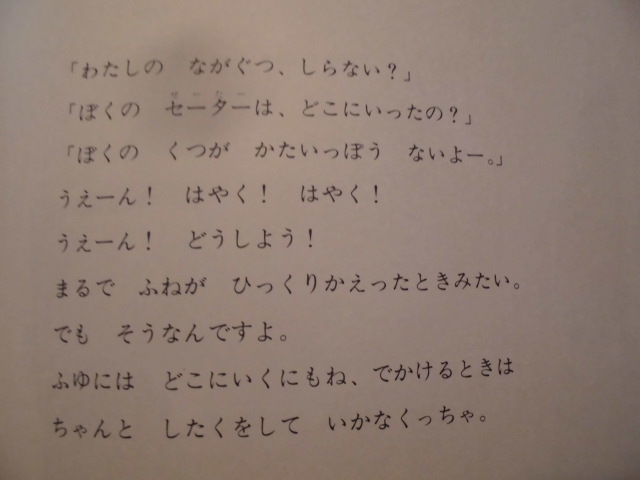 「わたしの　ながぐつ、しらない？」
「ぼくの　セーターは、どこにいったの？」
「ぼくの　くつが　かたいっぽう　ないよー。」
うえーん！　はやく！　はやく！
うえーん！　どうしよう！
まるで　ふねが　ひっくりかえったときみたい。
でも　そうなんですよ。
ふゆには　どこにいくにもね、でかけるときは
ちゃんと　したくをして　いかなくっちゃ。